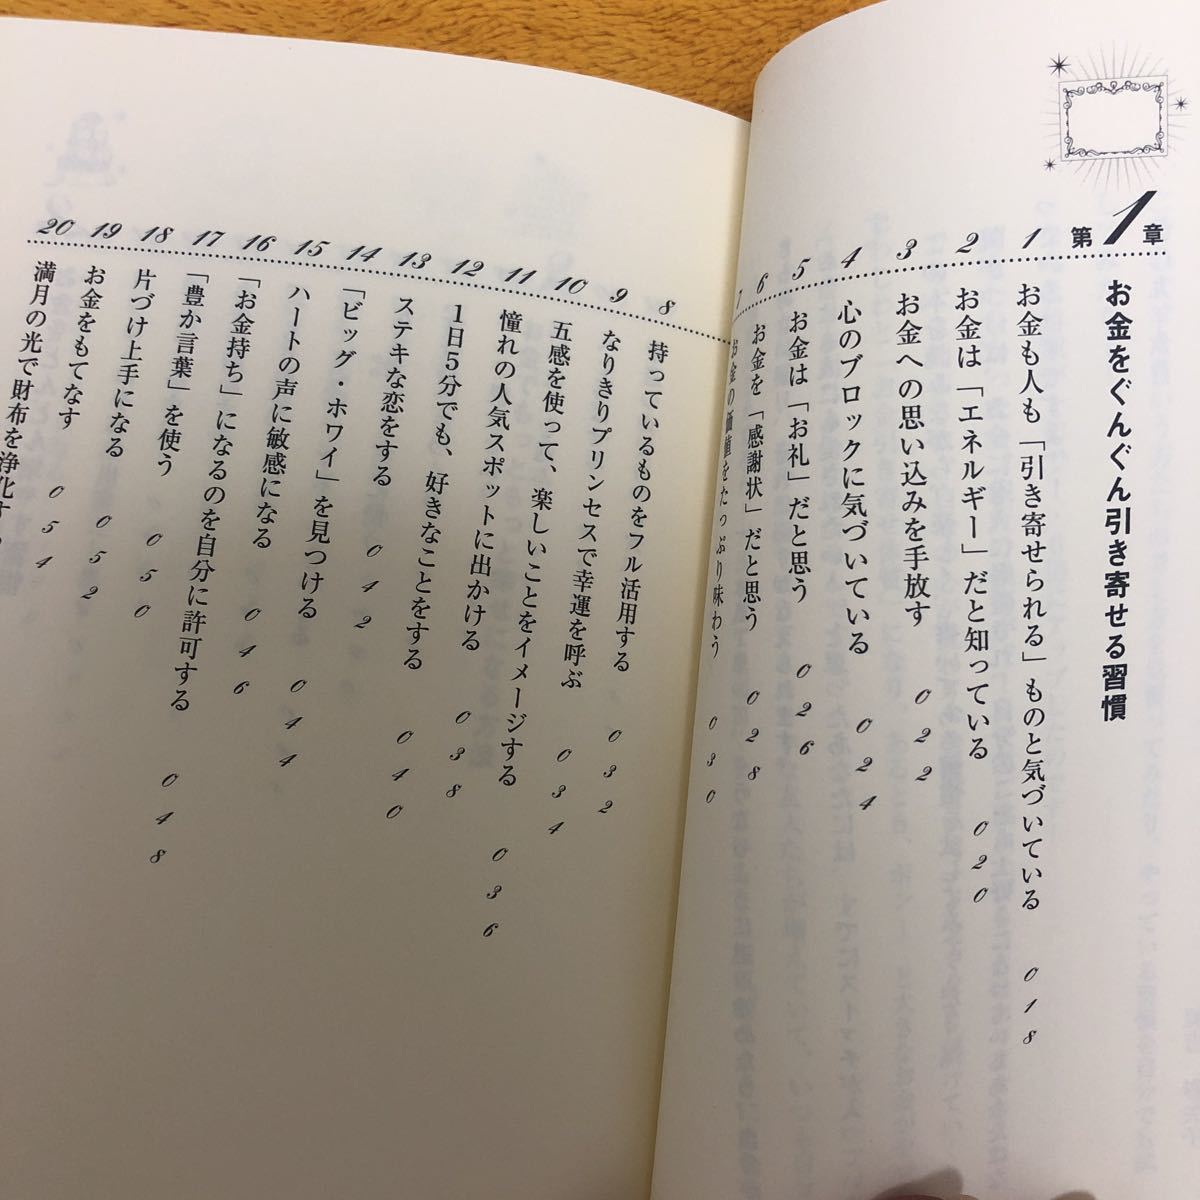 第1章 お金をぐんぐん引き寄せる習慣
1 お金も人も「引き寄せられる」ものと気づいている 018
2 お金は「エネルギー」だと知っている 020
3 お金への思い込みを手放す 022
4 心のブロックに気づいている 024
5 お金は「お礼」だと思う 026
6 お金を「感謝状」だと思う 028
7 お金の価値をたっぷり味わう 030
8 持っているものをフル活用する 032
9 なりきりプリンセスで幸運を呼ぶ 034
10 五感を使って、楽しいことをイメージする 036
11 憧れの人気スポットに出かける 038
12 1日5分でも、好きなことをする 040
13 ステキな恋をする 042
14 「ビッグ・ホワイ」を見つける 044
15 ハートの声に敏感になる 046
16 「お金持ち」になるのを自分に許可する 048
17 「豊か言葉」を使う 050
18 片づけ上手になる 052
19 お金をもてなす 054
20 満月の光で財布を浄化す